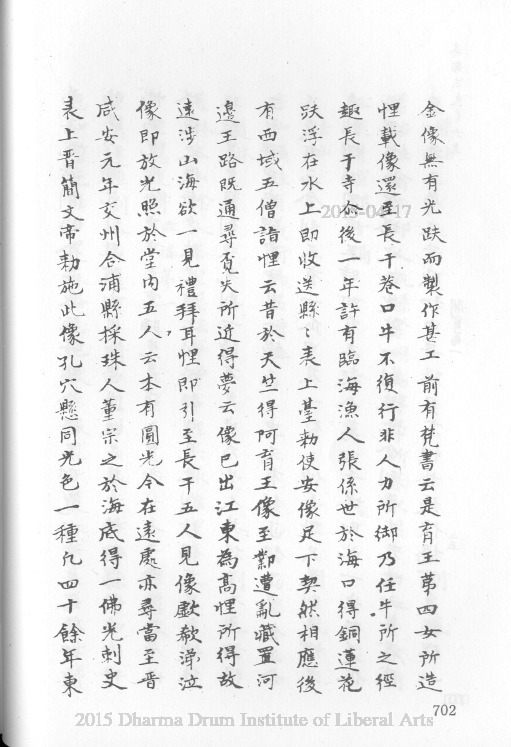 金像無有光趺而製作甚工前有梵書云是育王第四女所造
悝載像還至長干巷口牛不復行非人力所御乃任牛所之徑
趣長干寺尒後一年許有臨海漁人張係世於海口得銅蓮花
趺浮在水上即收送縣〻表上臺勑使安像足下契然相應後
有西域五僧詣悝云昔於天竺得阿育王像至鄴遭亂藏置河
邊王路既通尋覓失所近得夢云像已出江東為高悝所得故
遠涉山海欲一見禮拜耳悝即引至長干五人見像歔欷涕泣
像即放光照於堂內五人云本有圓光今在遠處亦尋當至晉
咸安元年交州合浦縣採珠人董宗之於海底得一佛光刺史
表上晉簡文帝勑施此像孔穴懸同光色一種凢四十餘年東
2015-04-17
702
2015 Dharma Drum Institute of Liberal Arts